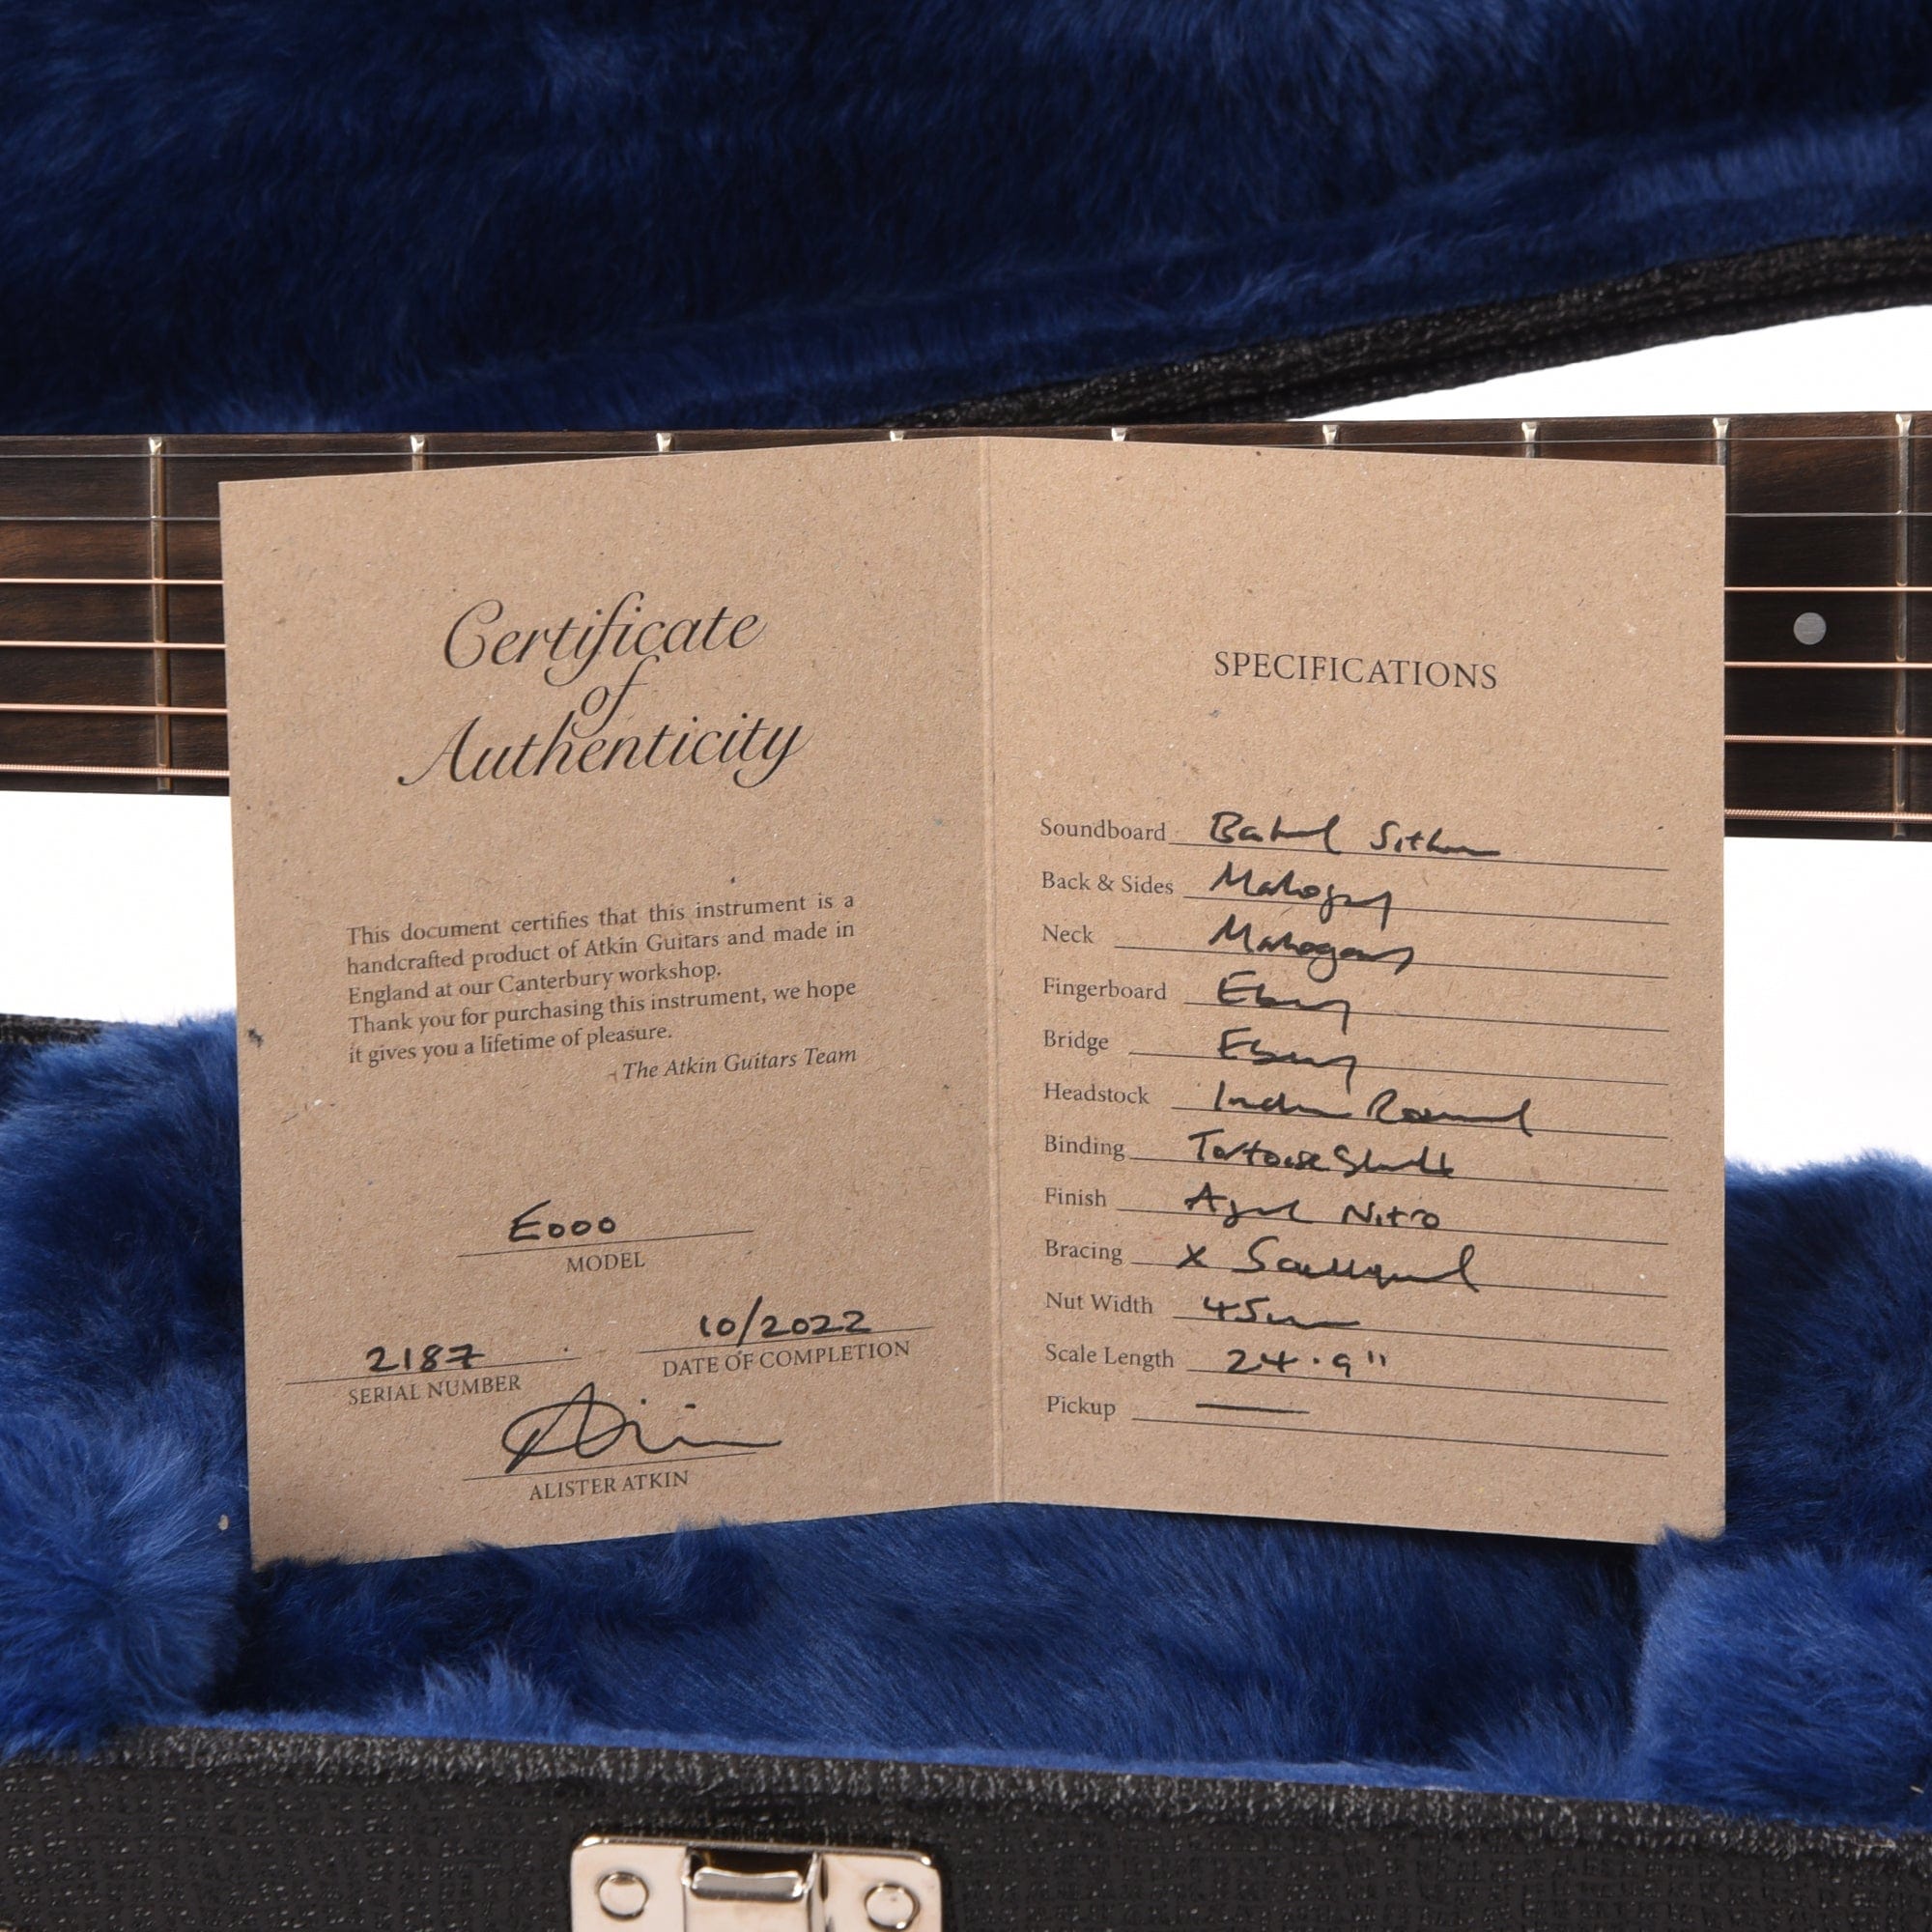 Certificate
of
Authenticity
This document certifies that this instrument is a
handcrafted product of Atkin Guitars and made in
England at our Canterbury workshop.
Thank you for purchasing this instrument, we hope
it gives you a lifetime of pleasure.
- The Atkin Guitars Team
E000
MODEL
2187
SERIAL NUMBER
10/2022
DATE OF COMPLETION
Atkin
ALISTER ATKIN
SPECIFICATIONS
Soundboard Baked Sitka
Back & Sides Mahogany
Neck Mahogany
Fingerboard Ebony
Bridge Ebony
Headstock Indian Rosewood
Binding Tortoise Shell
Finish Aged Nitro
Bracing X Scalloped
Nut Width 45mm
Scale Length 24.9"
Pickup —